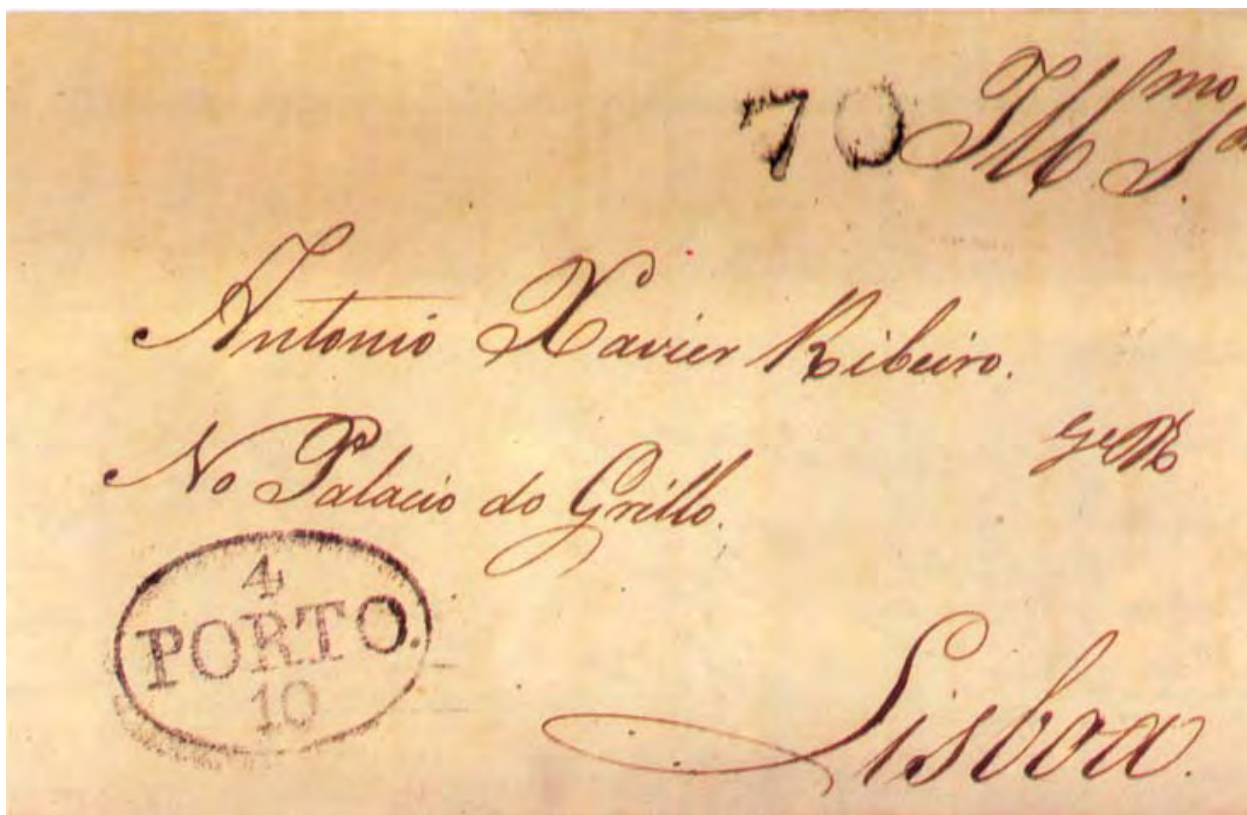 70 Ill.mo S.
Antonio Xavier Ribeiro.
No Palacio do Grillo.
4
PORTO.
10
Lisboa.